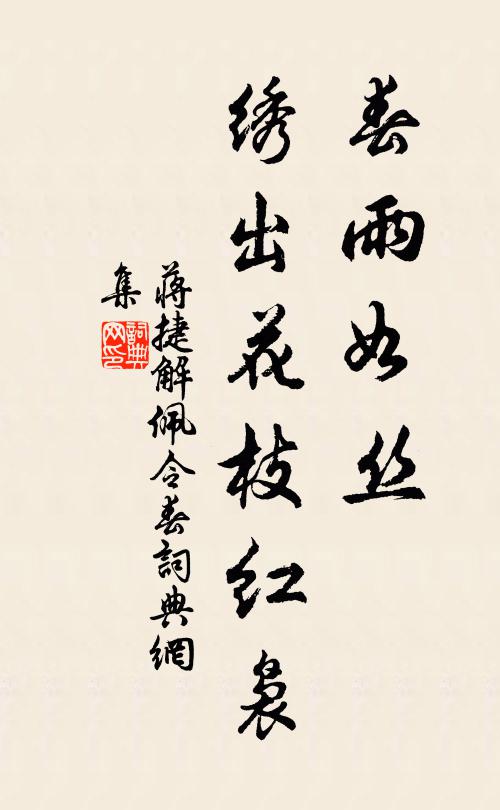 春雨如丝
绣出花枝红袅
蒋捷解佩令春詞典網
集
詞典
网印